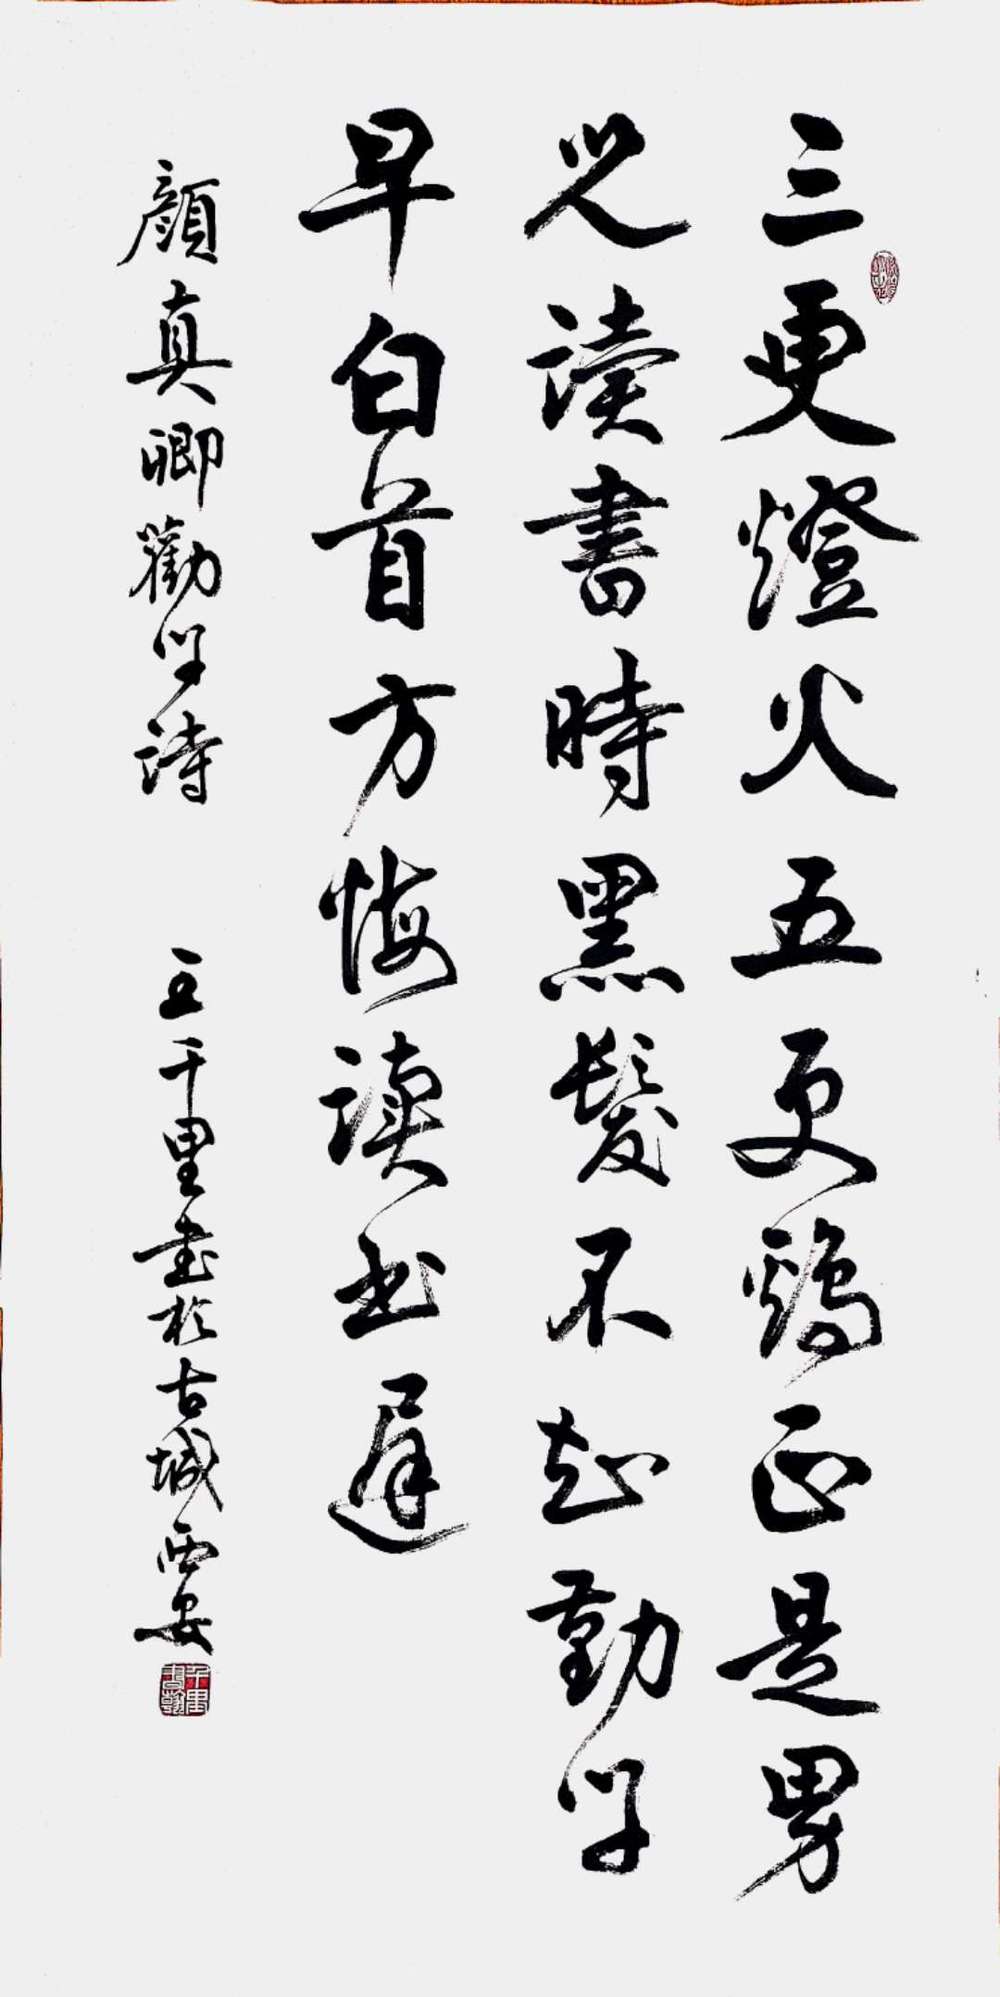 三更燈火五更鷄正是男
兒讀書時黑髮不知勤学
早白首方悔读书遲
顏真卿勸学詩 王千里書於古城西安
千里